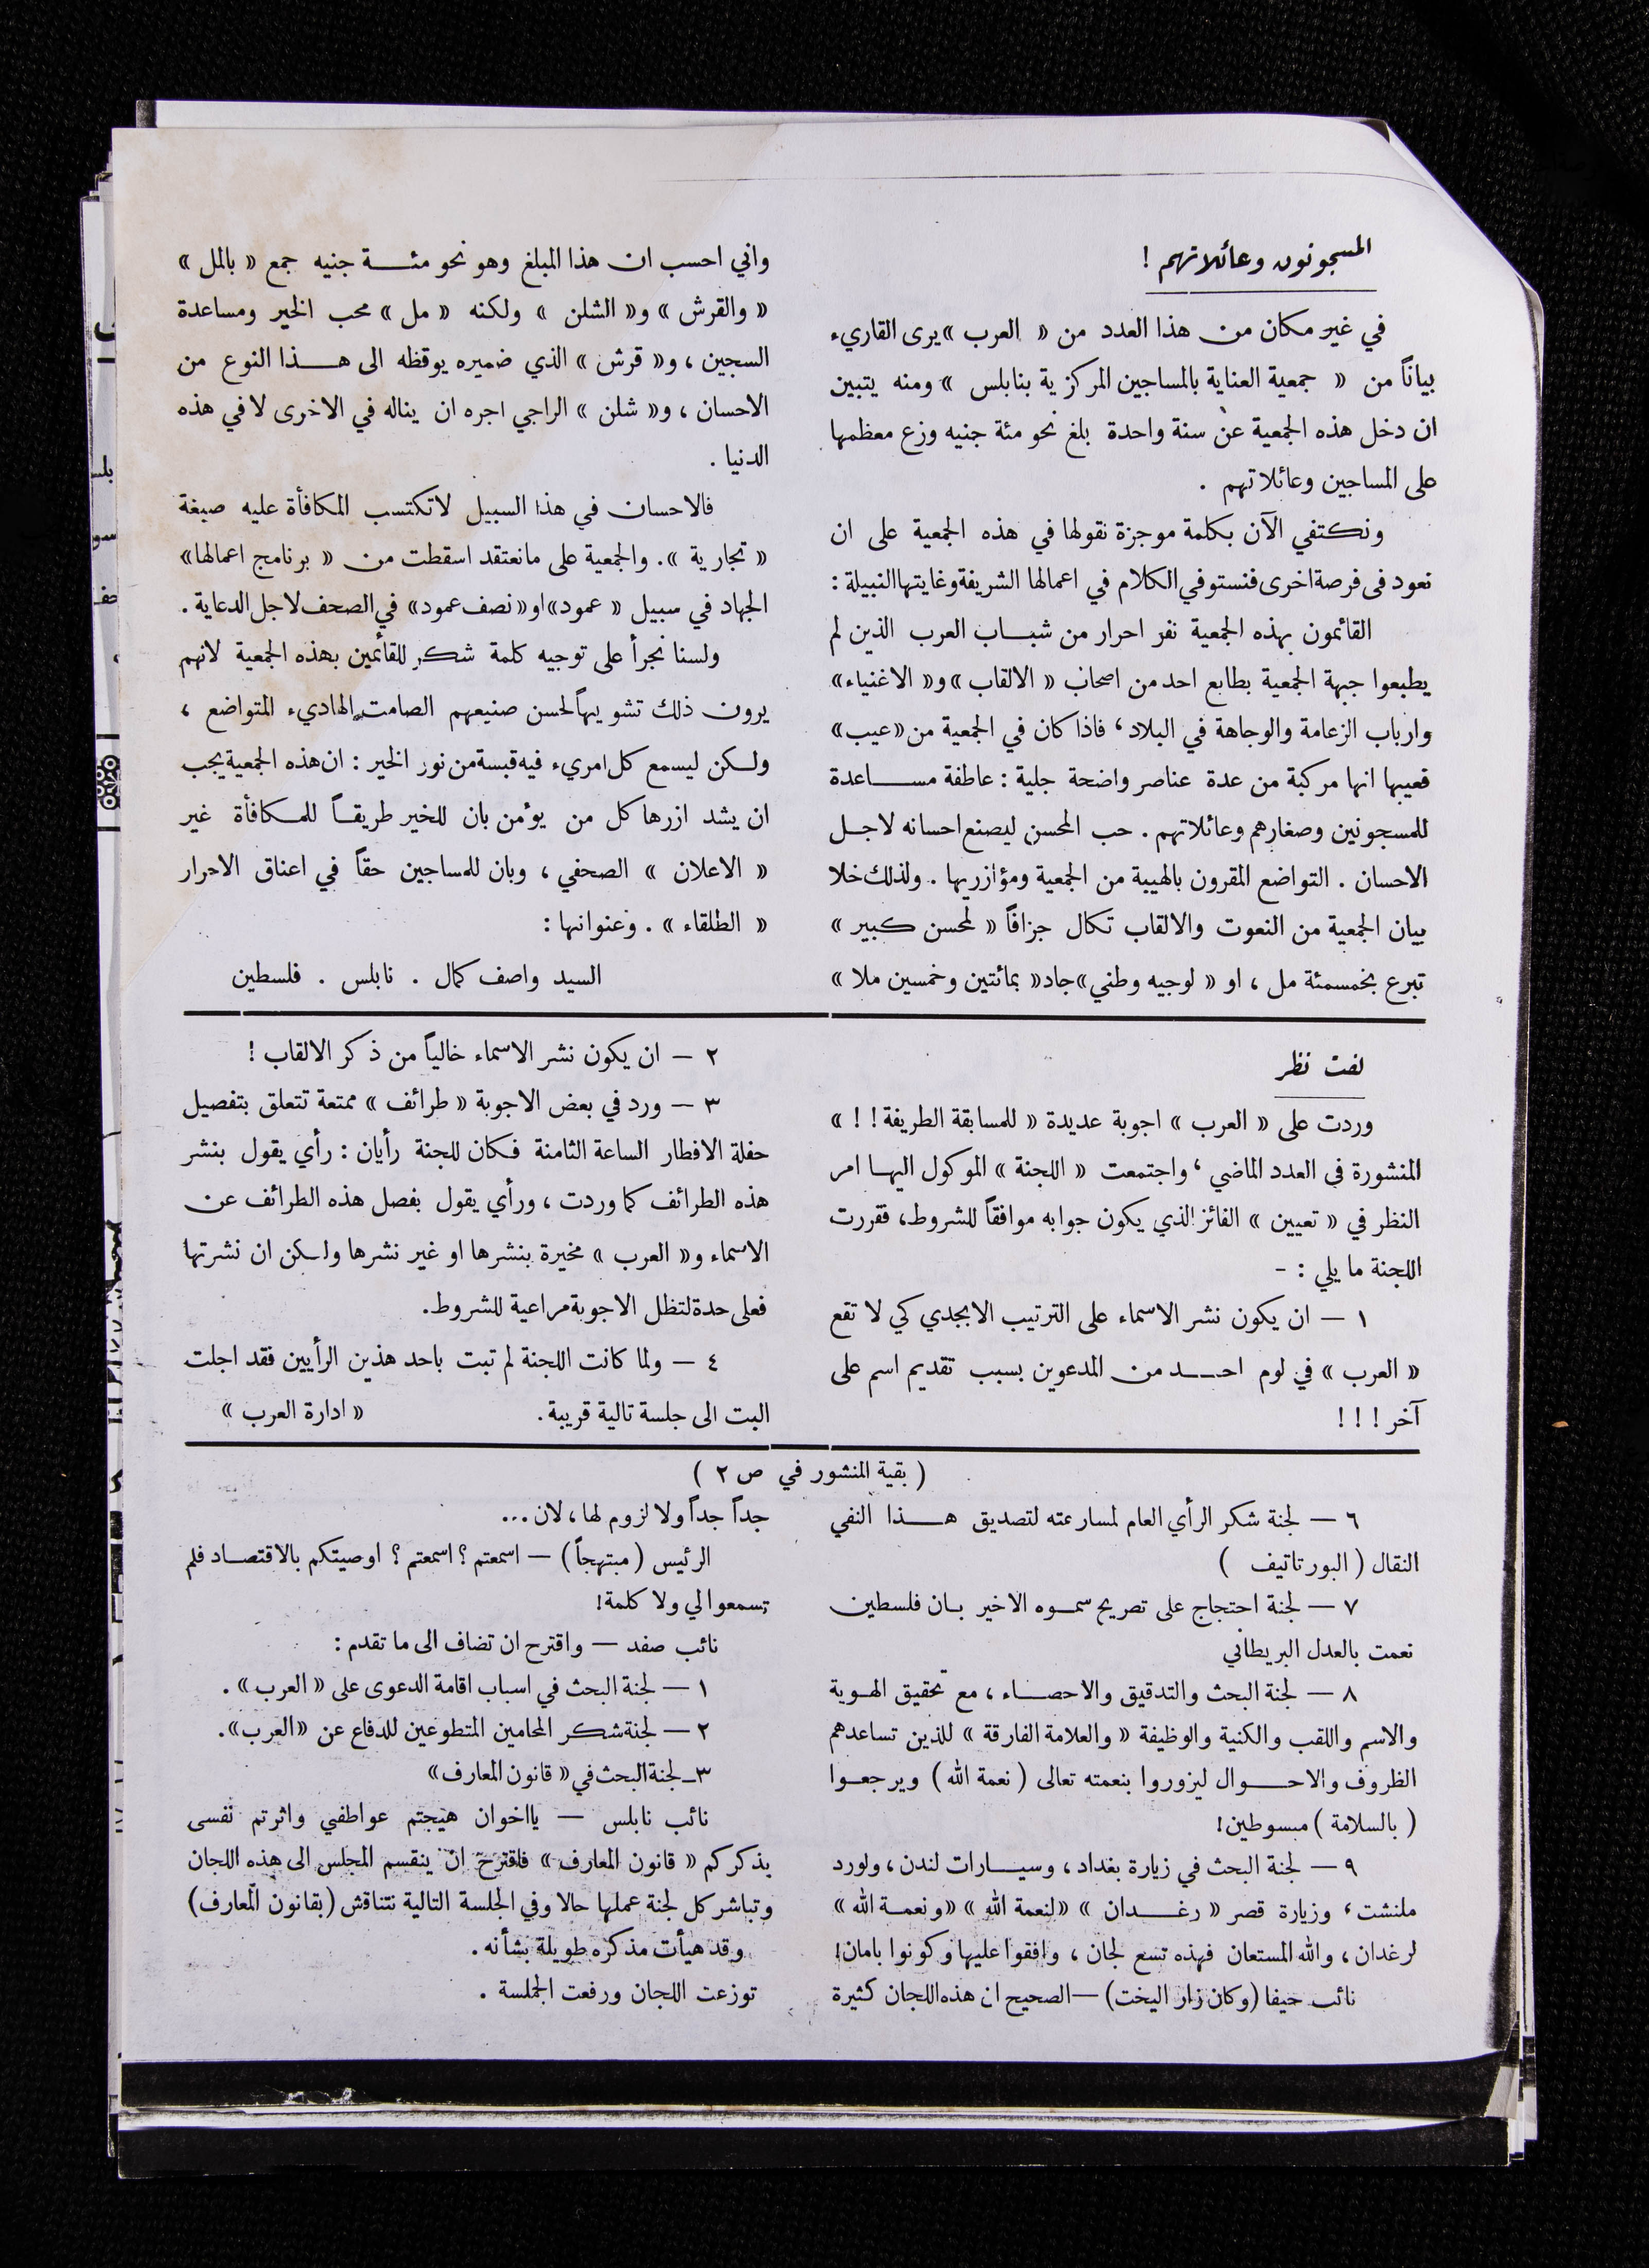 المسجونون وعائلاتهم !
في غير مكان من هذا العدد من « العرب » يرى القاريء
بياناً من « جمعية العناية بالمساجين المركزية بنابلس » ومنه يتبين
ان دخل هذه الجمعية عن سنة واحدة بلغ نحو مئة جنيه وزع معظمها
على المساجين وعائلاتهم .
ونكتفي الآن بكلمة موجزة نقولها في هذه الجمعية على ان
نعود في فرصة اخرى فنستوفي الكلام في اعمالها الشريفة وغايتها النبيلة :
القائمون بهذه الجمعية نفر احرار من شباب العرب الذين لم
يطبعوا جبهة الجمعية بطابع احد من اصحاب « الالقاب » و« الاغنياء »
وارباب الزعامة والوجاهة في البلاد ، فاذا كان في الجمعية من « عيب »
فعيبها انها مركبة من عدة عناصر واضحة جلية : عاطفة مساعدة
للمسجونين وصغارهم وعائلاتهم . حب المحسن ليصنع احسانه لاجل
الاحسان . التواضع المقرون بالهيبة من الجمعية ومؤازريها . ولذلك خلا
بيان الجمعية من النعوت والالقاب تكال جزافاً « لمحسن كبير »
تبرع بخمسمئة مل ، او « لوجيه وطني » جاد « بمائتين وخمسين ملا »
واني احسب ان هذا المبلغ وهو نحو مئة جنيه جمع « بالمل »
« والقرش » و« الشلن » ولكنه « مل » محب الخير ومساعدة
السجين ، و« قرش » الذي ضميره يوقظه الى هذا النوع من
الاحسان ، و« شلن » الراجي اجره ان يناله في الاخرى لا في هذه
الدنيا .
فالاحسان في هذا السبيل لا تكتسب المكافأة عليه صبغة
« تجارية » . والجمعية على ما نعتقد اسقطت من « برنامج اعمالها »
الجهاد في سبيل « عمود » او « نصف عمود » في الصحف لاجل الدعاية .
ولسنا نجرأ على توجيه كلمة شكر للقائمين بهذه الجمعية لانهم
يرون ذلك تشويهاً لحسن صنيعهم الصامت الهاديء المتواضع ،
ولكن ليسمع كل امريء فيه قبسة من نور الخير : ان هذه الجمعية يجب
ان يشد ازرها كل من يؤمن بان للخير طريقاً للمكافأة غير
« الاعلان » الصحفي ، وبان للمساجين حقاً في اعناق الاحرار
« الطلقاء » . وعنوانها :
السيد واصف كمال . نابلس . فلسطين
لفت نظر
وردت على « العرب » اجوبة عديدة « للمسابقة الطريفة ! ! »
المنشورة في العدد الماضي ، واجتمعت « اللجنة » الموكول اليها امر
النظر في « تعيين » الفائز الذي يكون جوابه موافقاً للشروط ، فقررت
اللجنة ما يلي : -
١ — ان يكون نشر الاسماء على الترتيب الابجدي كي لا تقع
« العرب » في لوم احد من المدعوين بسبب تقديم اسم على
آخر ! ! !
٢ — ان يكون نشر الاسماء خالياً من ذكر الالقاب !
٣ — ورد في بعض الاجوبة « طرائف » ممتعة تتعلق بتفصيل
حفلة الافطار الساعة الثامنة فكان للجنة رأيان : رأي يقول بنشر
هذه الطرائف كما وردت ، ورأي يقول بفصل هذه الطرائف عن
الاسماء و« العرب » مخيرة بنشرها او غير نشرها ولكن ان نشرتها
فعلى حدة لتظل الاجوبة مراعية للشروط .
٤ — ولما كانت اللجنة لم تبت باحد هذين الرأيين فقد اجلت
البت الى جلسة تالية قريبة . « ادارة العرب »
( بقية المنشور في ص ٢ )
٦ — لجنة شكر الرأي العام لمسارعته لتصديق هذا النفي
النقال ( البورتاتيف )
٧ — لجنة احتجاج على تصريح سموه الاخير بان فلسطين
نعمت بالعدل البريطاني
٨ — لجنة البحث والتدقيق والاحصاء ، مع تحقيق الهوية
والاسم واللقب والكنية والوظيفة « والعلامة الفارقة » للذين تساعدهم
الظروف والاحوال ليزوروا بنعمته تعالى ( نعمة الله ) ويرجعوا
( بالسلامة ) مبسوطين !
٩ — لجنة البحث في زيارة بغداد ، وسيارات لندن ، ولورد
ملنشت ، وزيارة قصر « رغدان » « لنعمة الله » « ونعمة الله »
لرغدان ، والله المستعان فهذه تسع لجان ، وافقوا عليها وكونوا بامان !
نائب حيفا ( وكان زار اليخت ) — الصحيح ان هذه اللجان كثيرة
جداً جداً ولا لزوم لها ، لان ...
الرئيس ( مبتهجاً ) — اسمعتم ؟ اسمعتم ؟ اوصيتكم بالاقتصاد فلم
تسمعوا لي ولا كلمة !
نائب صفد — واقترح ان تضاف الى ما تقدم :
١ — لجنة البحث في اسباب اقامة الدعوى على « العرب » .
٢ — لجنة شكر المحامين المتطوعين للدفاع عن « العرب » .
٣ — لجنة البحث في « قانون المعارف »
نائب نابلس — يااخوان هيجتم عواطفي واثرتم نفسى
بذكركم « قانون المعارف » فاقترح ان ينقسم المجلس الى هذه اللجان
وتباشر كل لجنة عملها حالا وفي الجلسة التالية نتناقش ( بقانون المعارف )
وقد هيأت مذكره طويلة بشأنه .
توزعت اللجان ورفعت الجلسة .